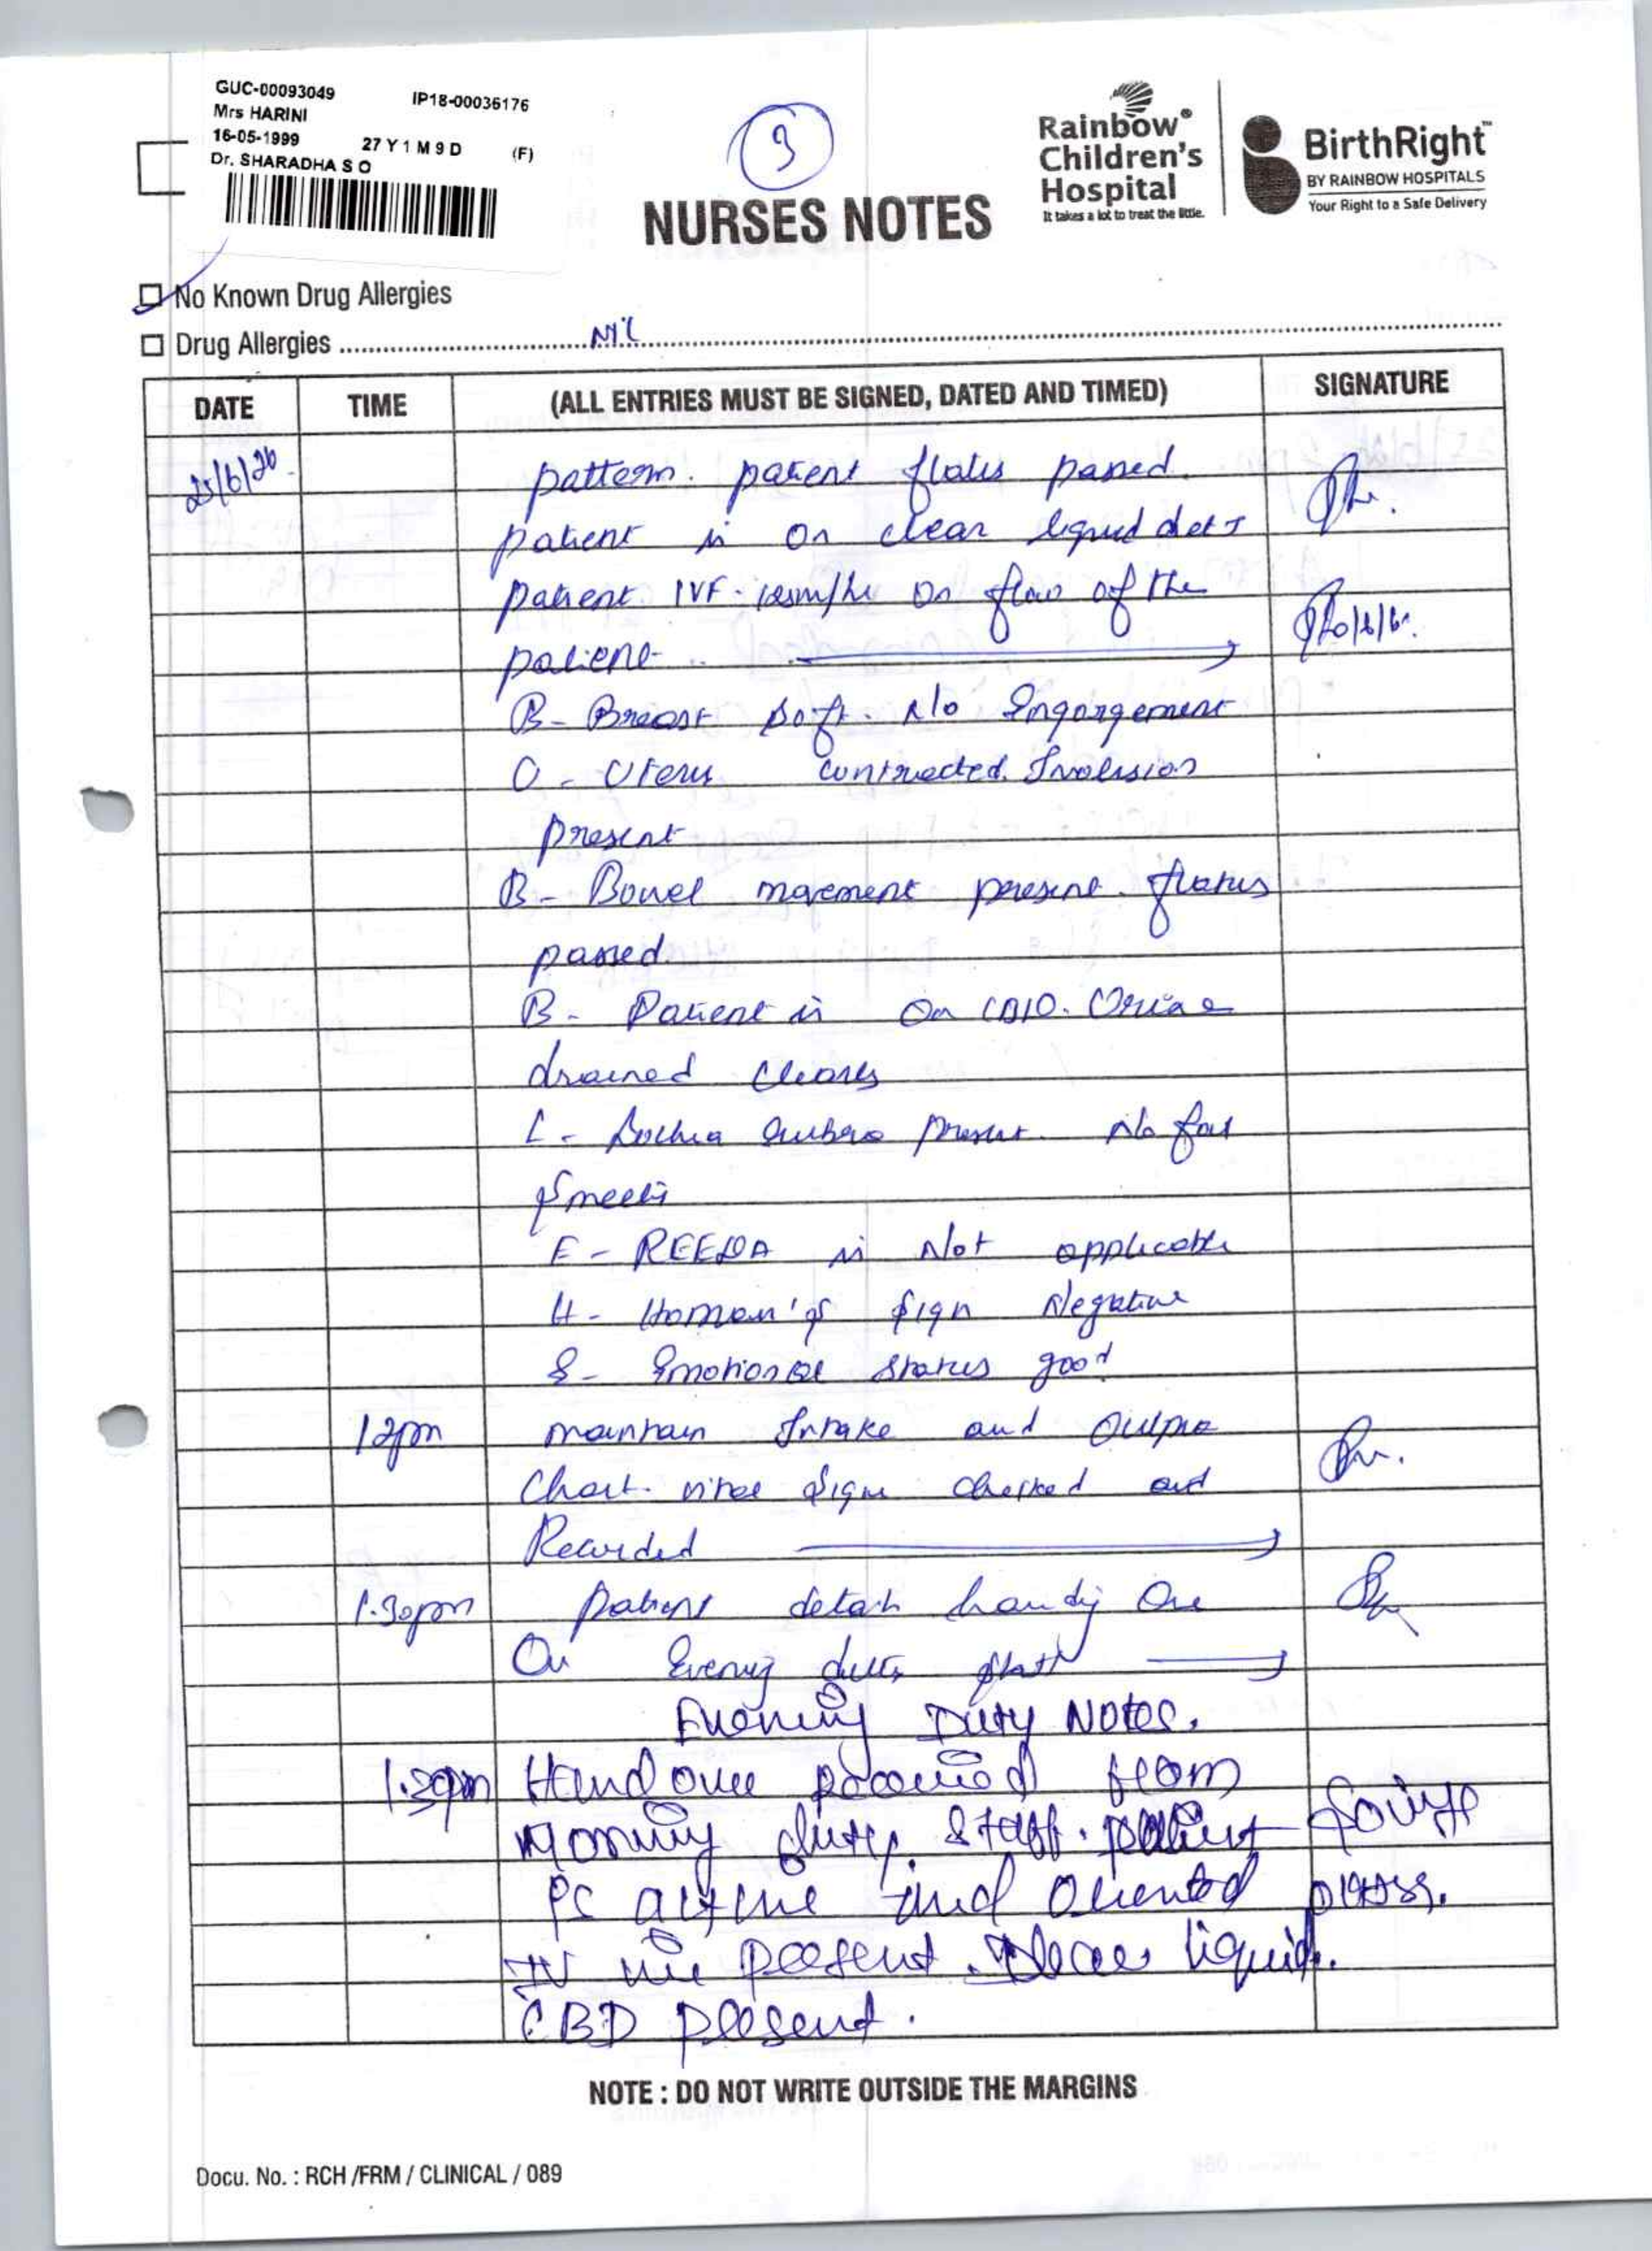 GUC-00093049 IP18-00036176
Mrs HARINI
16-05-1999 27 Y 1 M 9 D (F)
Dr. SHARADHA S O
9
NURSES NOTES
Rainbow®
Children's
Hospital
It takes a lot to treat the little.
BirthRight™
BY RAINBOW HOSPITALS
Your Right to a Safe Delivery
No Known Drug Allergies
Drug Allergies Nil
DATE TIME (ALL ENTRIES MUST BE SIGNED, DATED AND TIMED) SIGNATURE
25/6/26 pattern. patient flatus passed.
patient is on clear liquid diet
patient IVF - on flow of the
patient
B - Breast soft. N/o Engorgement
U - Uterus contracted. Involusion
present
B - Bowel movement present. flatus
passed
B - Patient is on CBD. Urine
drained clearly
L - Lochia rubera present. No foul
smells
E - REEDA is Not applicable
H - Homan's sign Negative
E - Emotional status good
12pm maintain Intake and Output
Chart. vital signs checked and
Recorded
1.30pm patient details handing over
On Evening duty staff
Evening Duty Notes.
1.30pm Hand over received from
Morning duty staff. patient
is active and oriented
IV line present. clear liquid.
CBD present.
NOTE : DO NOT WRITE OUTSIDE THE MARGINS
Docu. No. : RCH /FRM / CLINICAL / 089